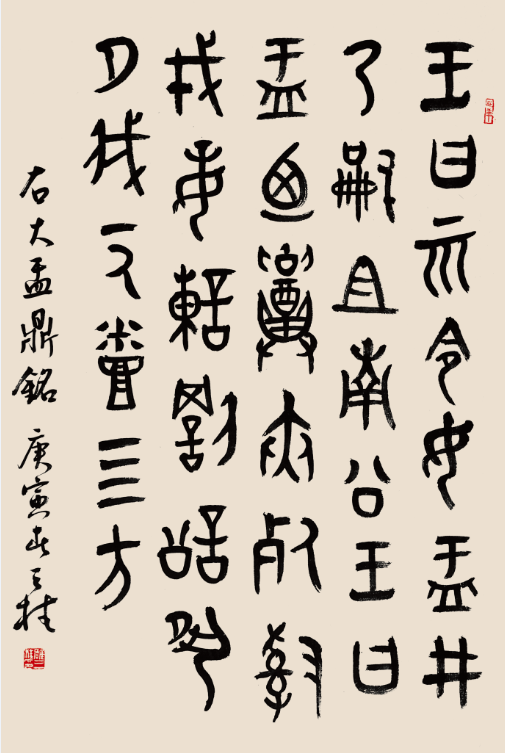 王曰而令女盂井
乃嗣且南公王曰
盂迺召夾死司
戎敏諫罰訟夙
夕我一人烝四方
右大盂鼎銘 庚寅春